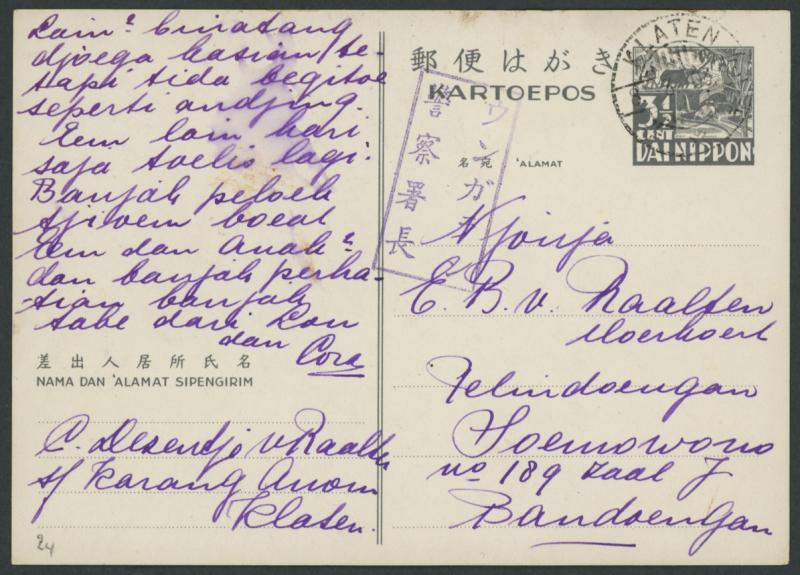 Lain² binatang
djoega kasian, te-
tapi tida begitoe
seperti andjing.
Eem lain hari
saja toelis lagi.
Banjak peloek
tjioem boeat
Eem dan Anak²
dan banjak perha-
tian banjak
tabe dari Lou
dan Cora
差出人居所氏名
NAMA DAN ALAMAT SIPENGIRIM
C. Desentje v Raalten
s/f Karang Anom
Klaten.
24
郵便はがき
KARTOEPOS
名宛 ALAMAT
KLATEN
3½
CENT
DAI NIPPON
ウンガ
警察署長
Njonja
E. B. v. Raalten
Pelindoengan
Soemowono
no 189 zaal J
Bandoengan